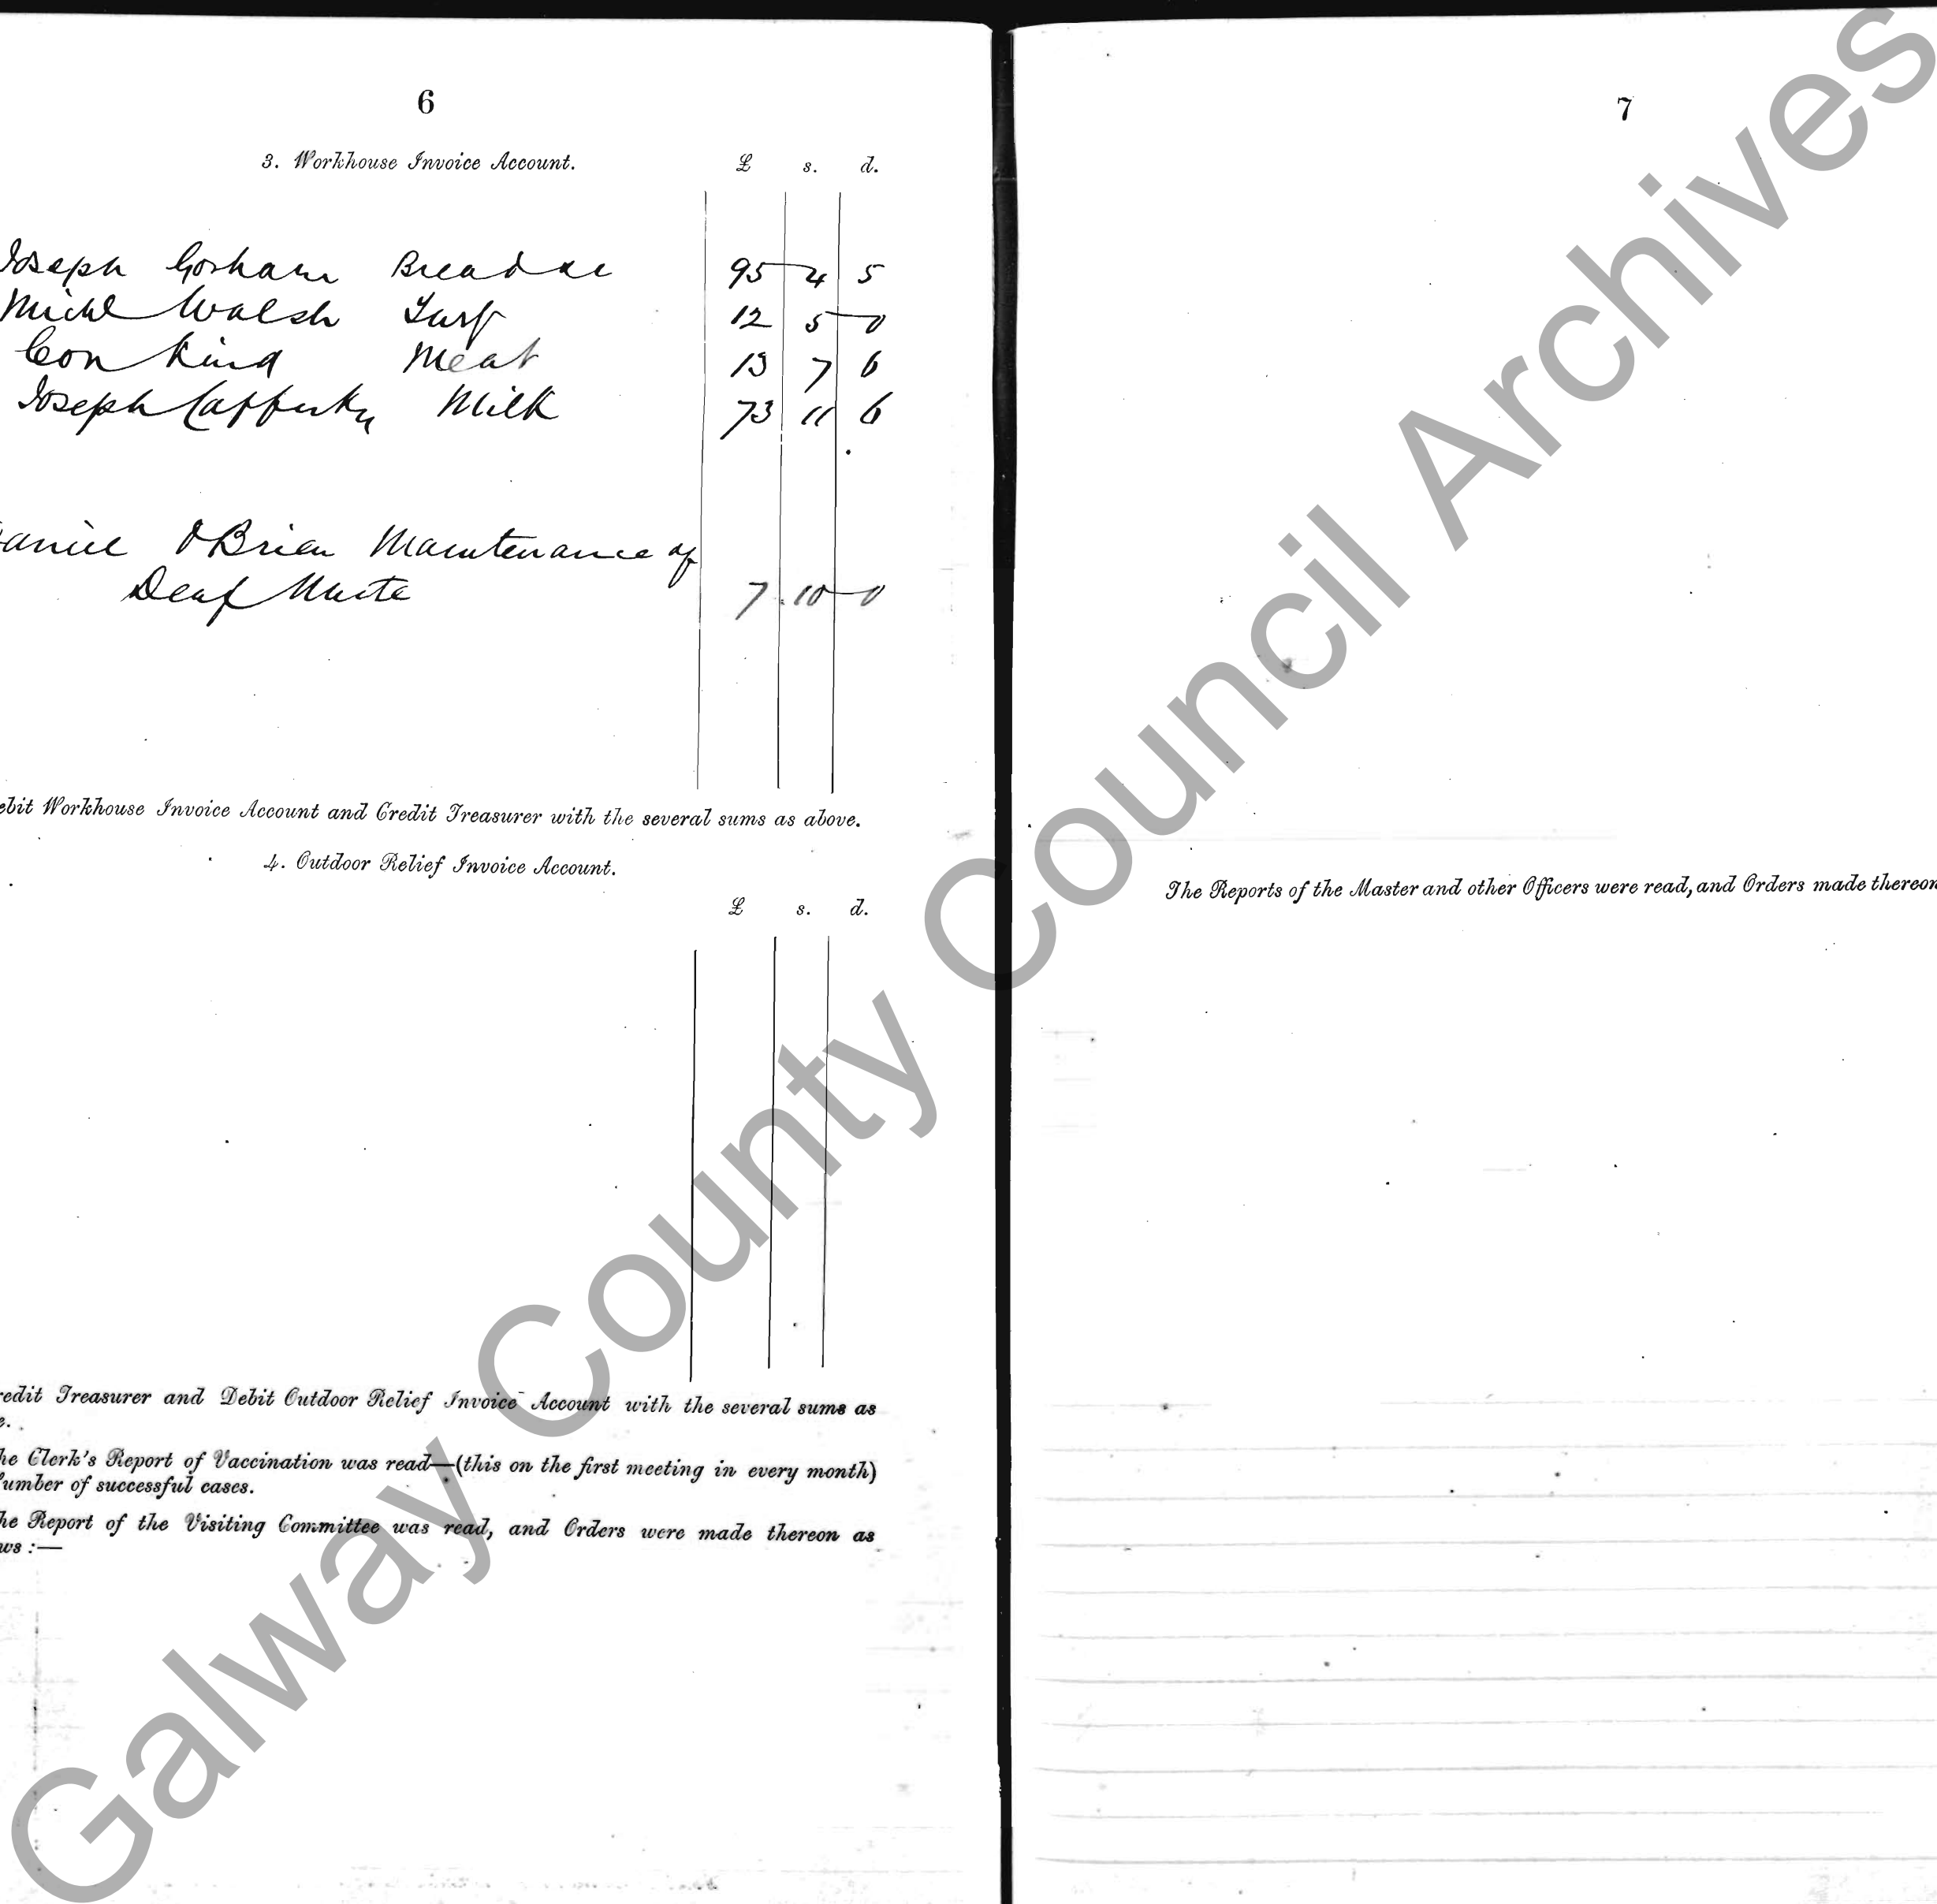 6
3. Workhouse Invoice Account. £ s. d.
Joseph Gorham Bread &c 95 4 5
Michl Walsh Turf 12 5 0
Con King Meat 13 7 6
Joseph Cafferky Milk 73 11 6
aniel O'Brien Maintenance of
Deaf Mute 7 10 0
ebit Workhouse Invoice Account and Credit Treasurer with the several sums as above.
4. Outdoor Relief Invoice Account.
£ s. d.
redit Treasurer and Debit Outdoor Relief Invoice Account with the several sums as
e.
he Clerk's Report of Vaccination was read—(this on the first meeting in every month)
umber of successful cases.
he Report of the Visiting Committee was read, and Orders were made thereon as
ws :—
7
The Reports of the Master and other Officers were read, and Orders made thereon
Galway County Council Archives